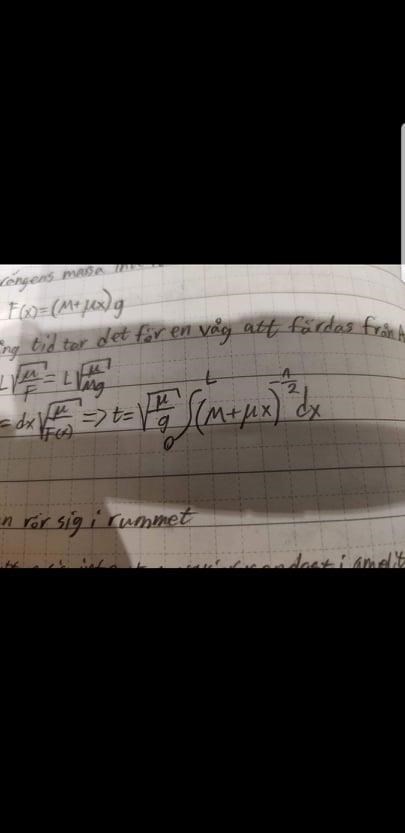 rängens massa
F(x)=(M+μx)g
ng tid tar det för en våg att färdas från A
L√(μ/F) = L√(μ/Mg)
= dx√(μ/F(x)) => t=√(μ/g) ∫₀ᴸ (M+μx)^(-1/2) dx
n rör sig i rummet